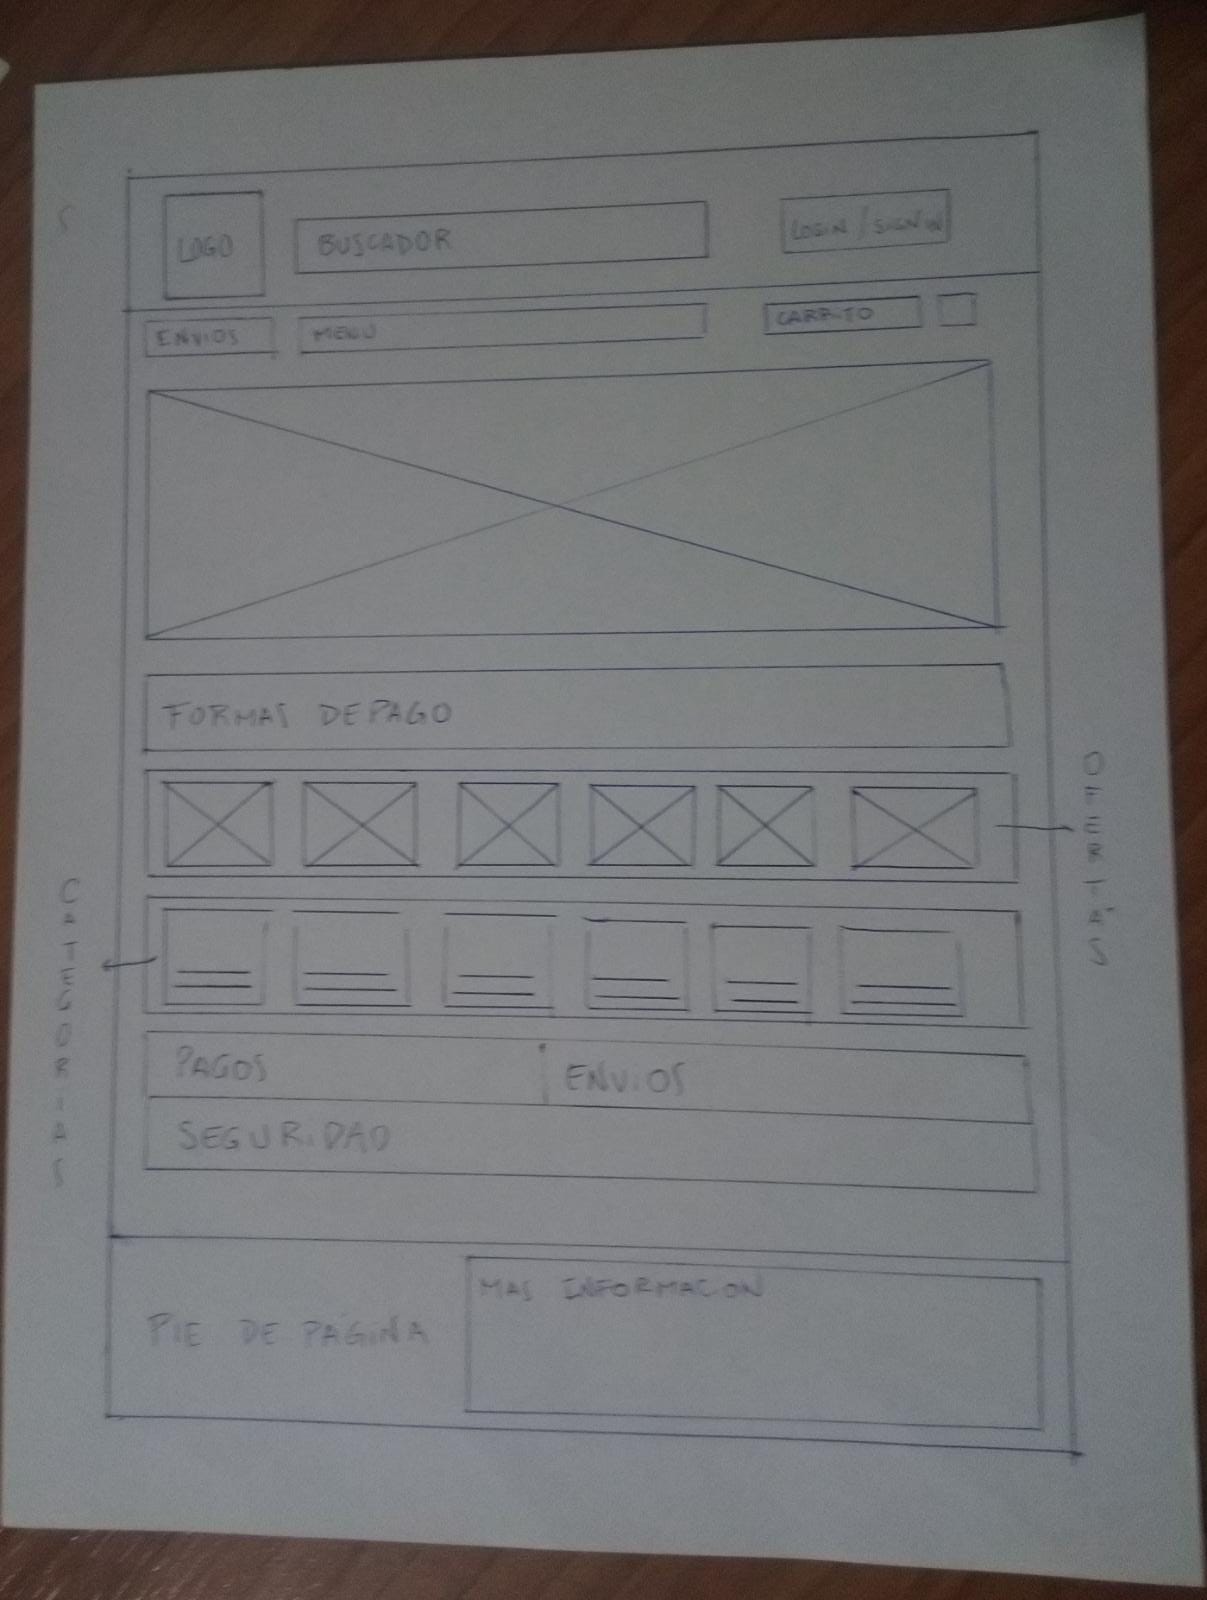 LOGO
BUSCADOR
LOGIN / SIGN IN
ENVIOS
MENU
CARRITO
FORMAS DE PAGO
OFERTAS
CATEGORIAS
PAGOS
ENVIOS
SEGURIDAD
PIE DE PÁGINA
MAS INFORMACION